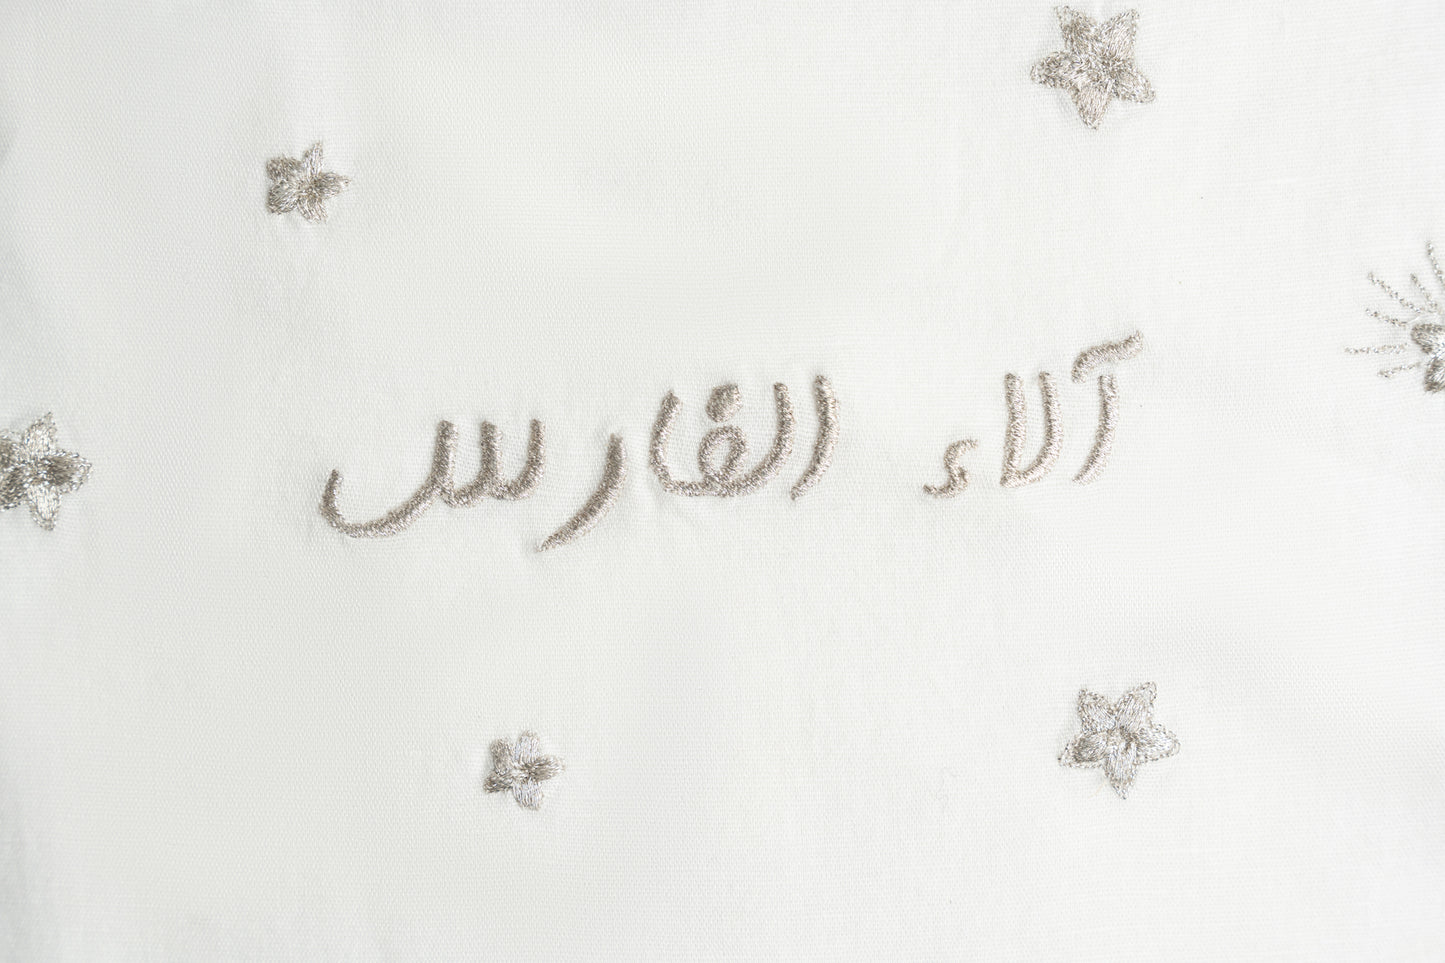 آلاء الفارس